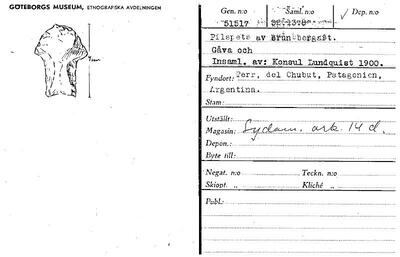 GÖTEBORGS MUSEUM, ETNOGRAFISKA AVDELNINGEN
Gen. n:o Saml. n:o Dep. n:o
51517
Pilspets av
Gåva och
Insaml. av: Konsul Lundquist 1900.
Fyndort: Terr. del Chubut, Patagonien,
Argentina.
Stam:
Utställt:
Magasin: Sydam. ark. 14 d.
Depon.:
Byte till:
Negat. n:o Teckn. n:o
Skiopt. „ Kliché „
Publ.: